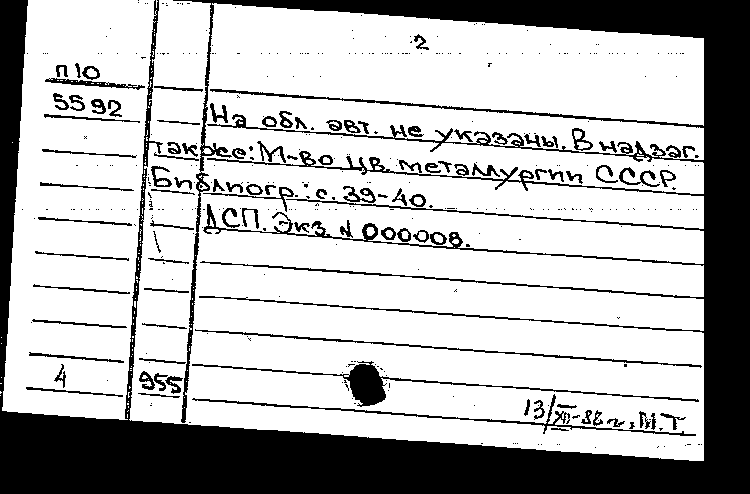 2
П10
5592
На обл. авт. не указаны. В надзаг.
также: М-во цв. металлургии СССР.
Библиогр.: с. 39-40.
ДСП. Экз. № 000008.
4
955
13/XII-88 г., М.Т.